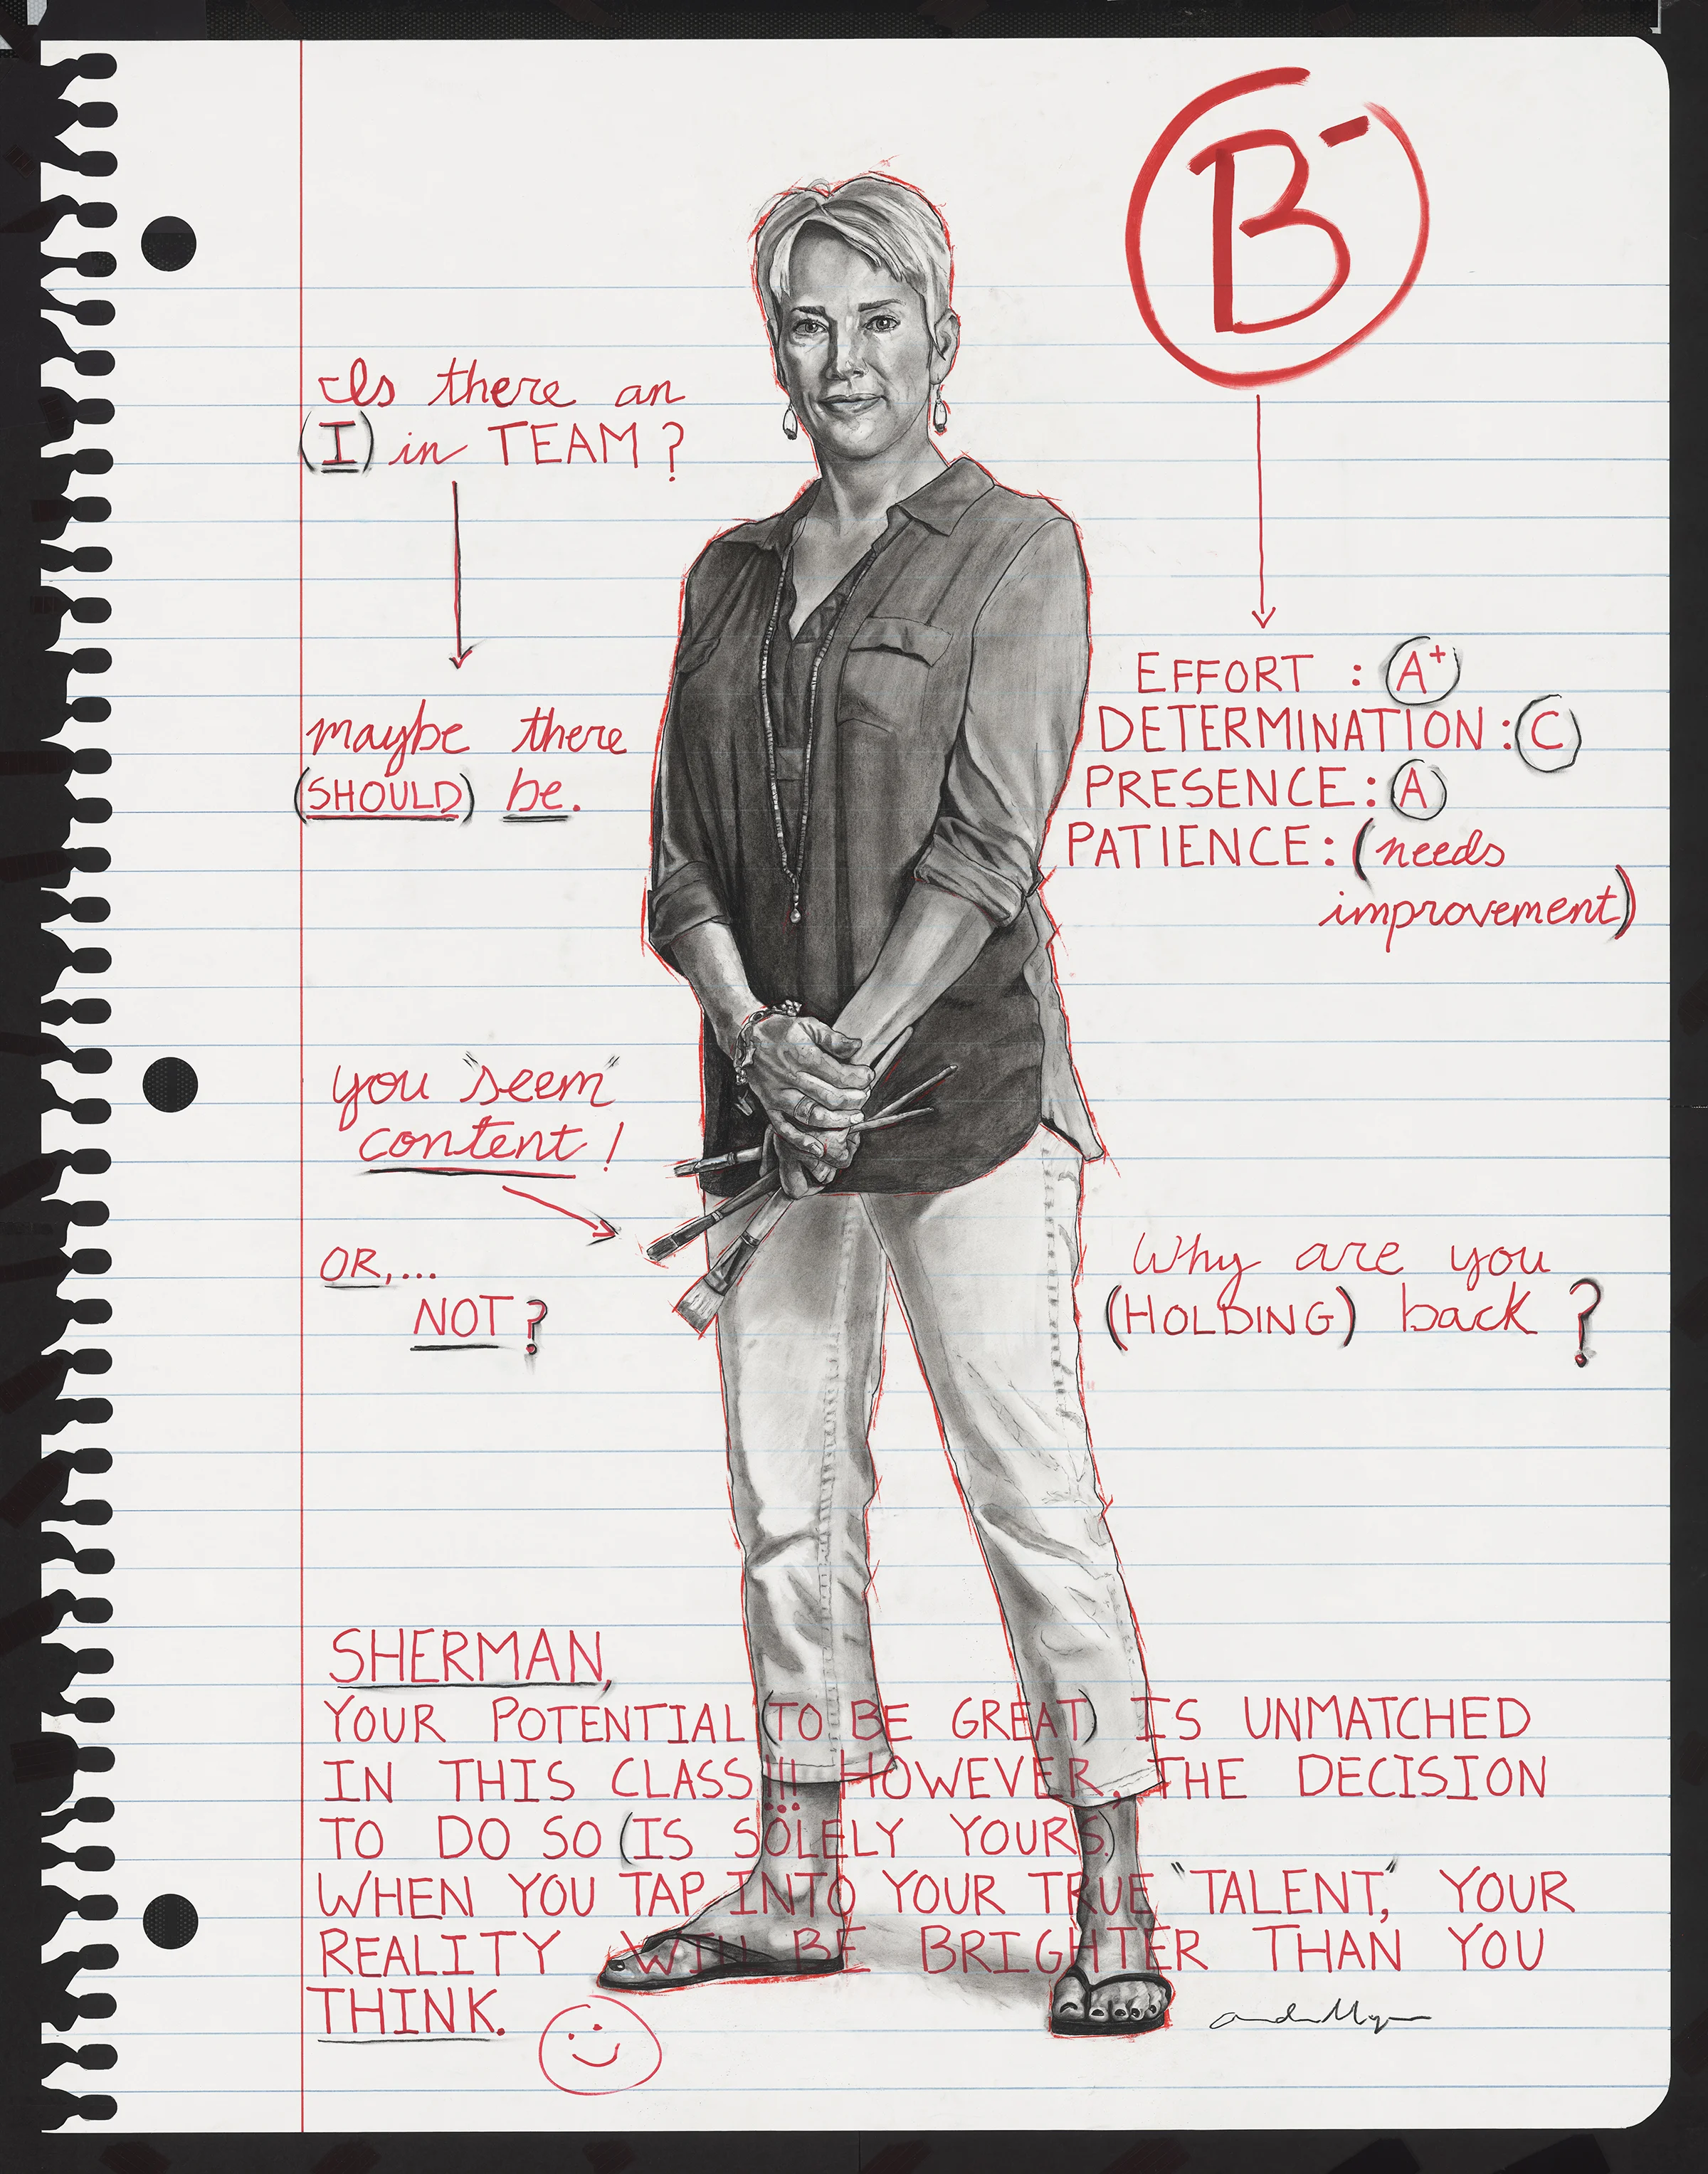 B-
Is there an
(I) in TEAM?
maybe there
(SHOULD) be.
EFFORT : A+
DETERMINATION: C
PRESENCE: A
PATIENCE: (needs
improvement)
you "seem"
content!
OR,...
NOT?
Why are you
(HOLDING) back ?
SHERMAN,
YOUR POTENTIAL (TO BE GREAT) IS UNMATCHED
IN THIS CLASS!!! HOWEVER, THE DECISION
TO DO SO (IS SOLELY YOURS)
WHEN YOU TAP INTO YOUR TRUE "TALENT," YOUR
REALITY WILL BE BRIGHTER THAN YOU
THINK.